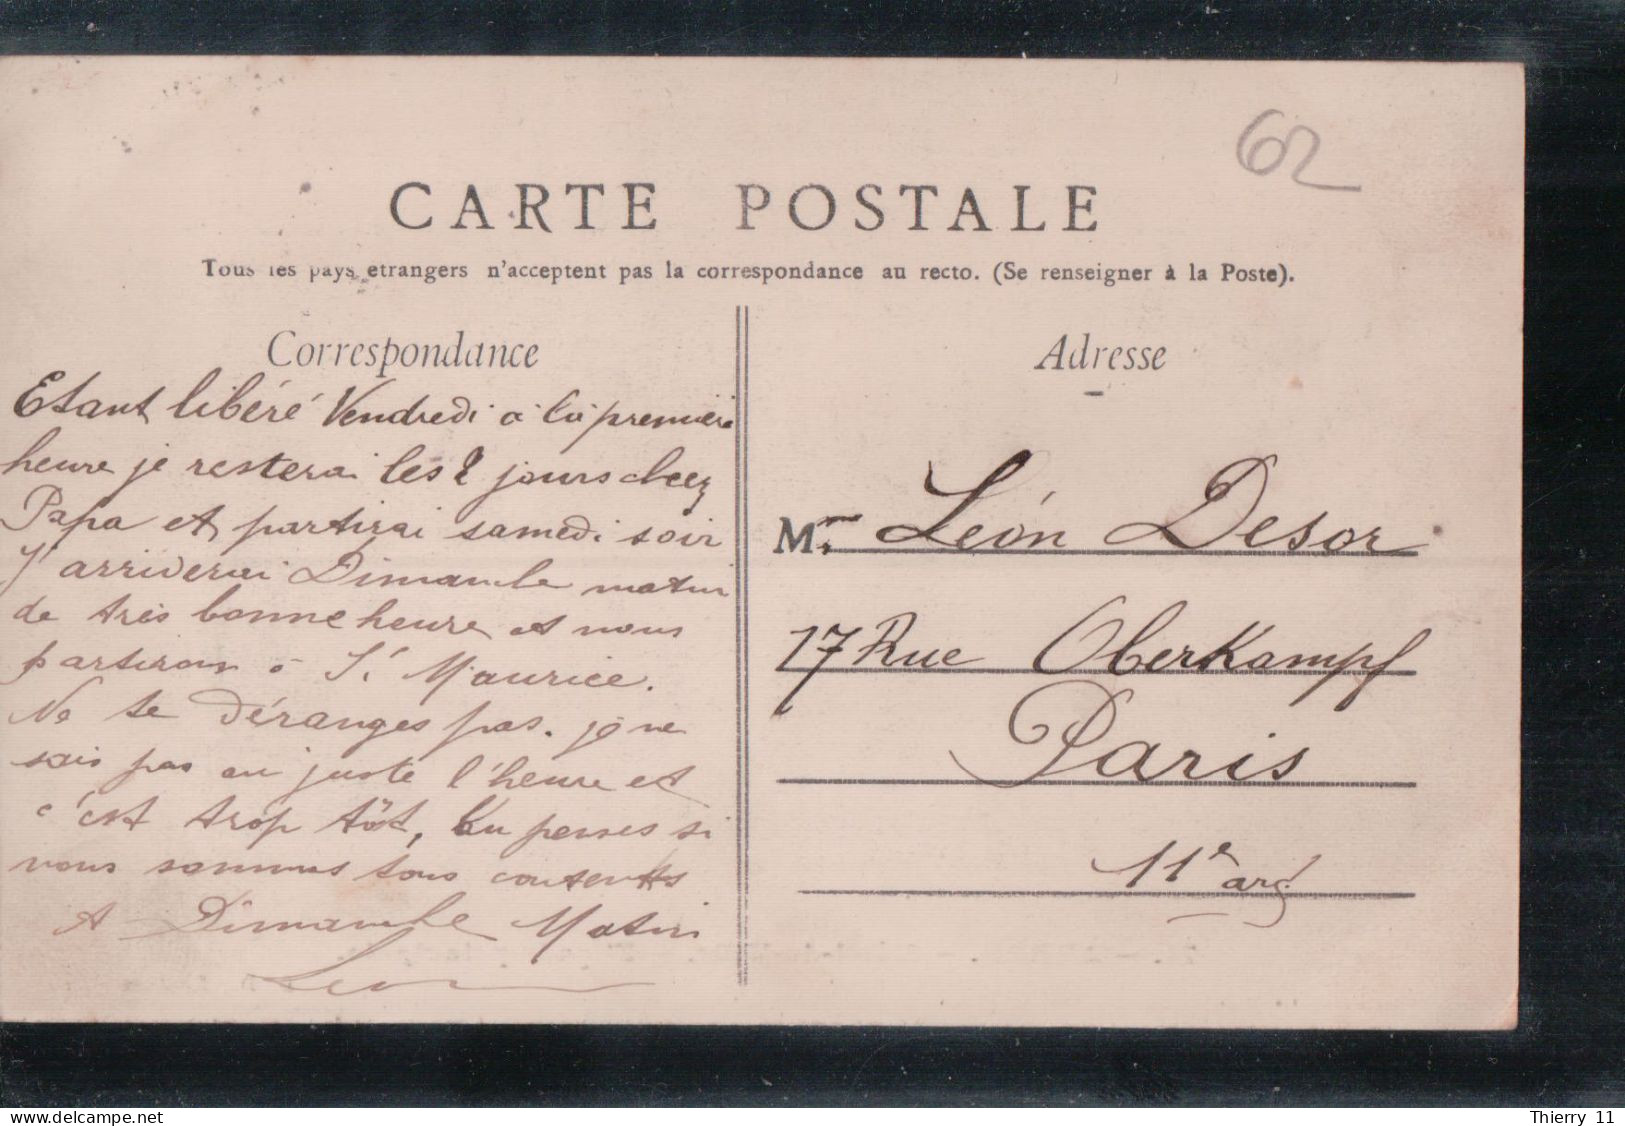 62
CARTE POSTALE
Tous les pays etrangers n'acceptent pas la correspondance au recto. (Se renseigner à la Poste).
Correspondance
Etant libéré Vendredi à la première
heure je resterai les 2 jours chez
Papa et partirai samedi soir
J'arriverai Dimanche matin
de très bonne heure et nous
partirons à St Maurice.
Ne te déranges pas. je ne
sais pas au juste l'heure et
c'est trop tôt, tu penses si
nous sommes tous contents
A Dimanche Matin
Leon
Adresse
Mr Léon Desor
17 Rue Oberkampf
Paris
11e ard.
delcampe.net
Thierry 11